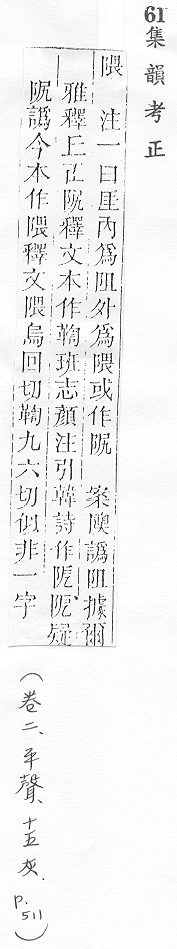 61集韻考正
隈　注一曰厓內爲阻外爲隈或作阮　案隩譌阻據爾
雅釋丘正阮釋文本作鞫班志顏注引韓詩作阮阮疑
阮譌今本作隈釋文隈烏回切鞫九六切似非一字
(卷二、平聲、十五灰、p.511)